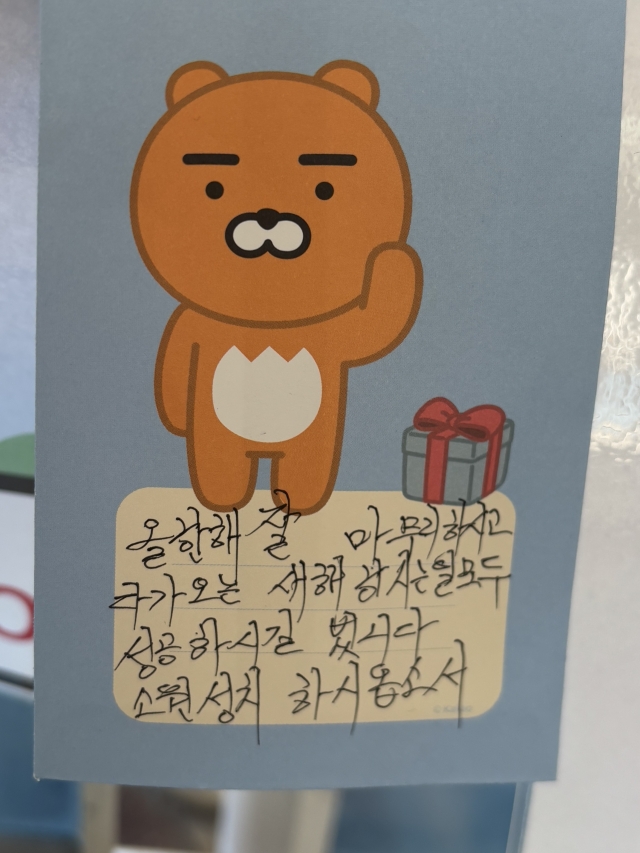 올한해 잘 마무리하시고
다가오는 새해 하시는일모두
성공하시길 빕니다
소원성취 하시옵소서